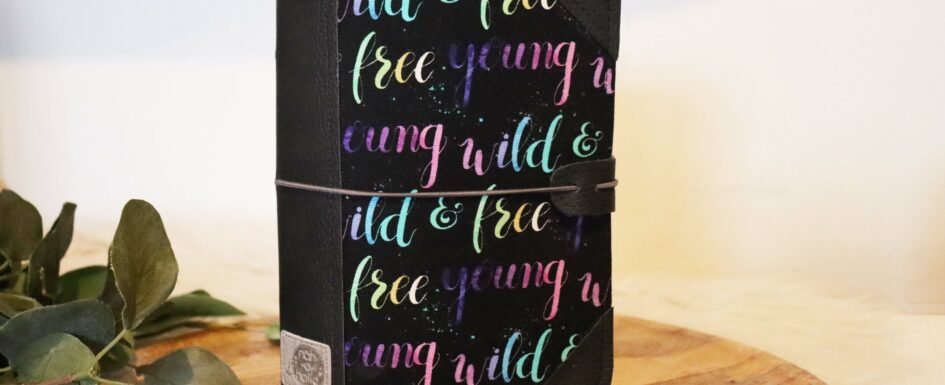 wild & free
free young w
oung wild &
wild & free
free young w
oung wild &